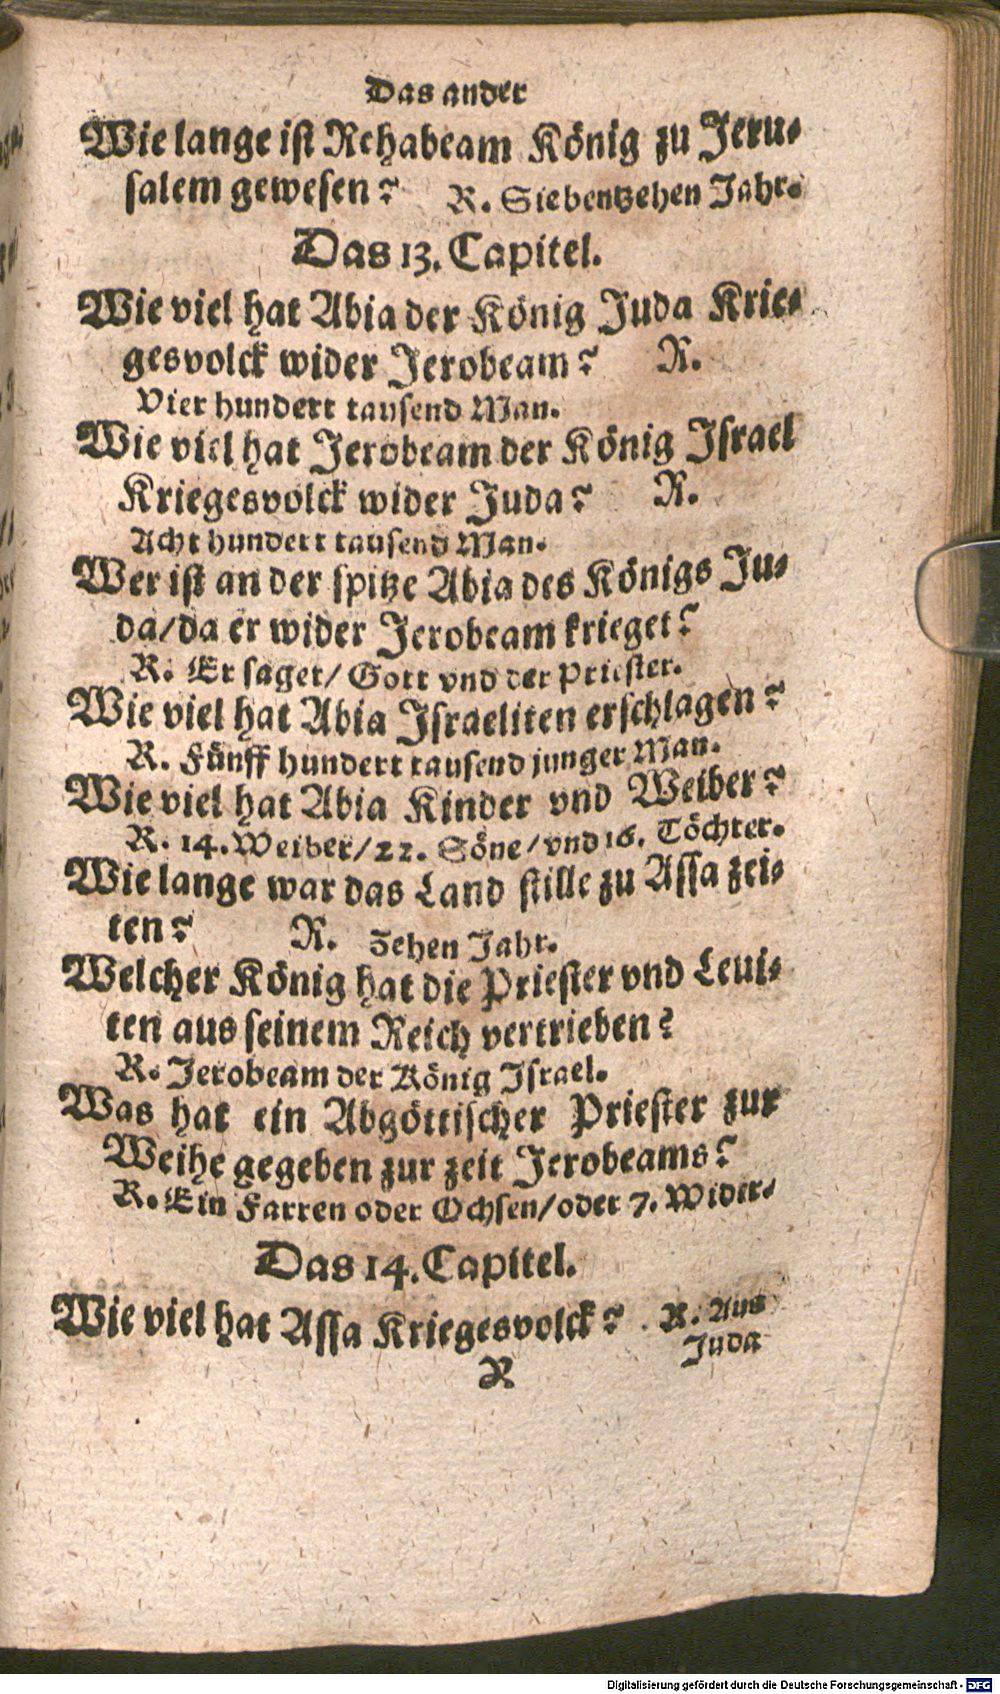 Das ander
Wie lange ist Rehabeam König zu Jeru-
salem gewesen? R. Siebentzehen Jahr.
Das 13. Capitel.
Wie viel hat Abia der König Juda Krie-
gesvolck wider Jerobeam? R.
Vier hundert tausend Man.
Wie viel hat Jerobeam der König Israel
Kriegesvolck wider Juda? R.
Acht hundert tausend Man.
Wer ist an der spitze Abia des Königs Ju-
da/da er wider Jerobeam krieget?
R. Er saget/ Gott vnd der Priester.
Wie viel hat Abia Israeliten erschlagen?
R. Fünff hundert tausend junger Man.
Wie viel hat Abia Kinder vnd Weiber?
R. 14. Weiber/22. Söne/vnd 16. Töchter.
Wie lange war das Land stille zu Assa zei-
ten? R. Zehen Jahr.
Welcher König hat die Priester vnd Leui-
ten aus seinem Reich vertrieben?
R. Jerobeam der König Israel.
Was hat ein Abgöttischer Priester zur
Weihe gegeben zur zeit Jerobeams?
R. Ein Farren oder Ochsen/oder 7. Wider.
Das 14. Capitel.
Wie viel hat Assa Kriegesvolck? R. Aus
Juda
R
Digitalisierung gefördert durch die Deutsche Forschungsgemeinschaft - DFG